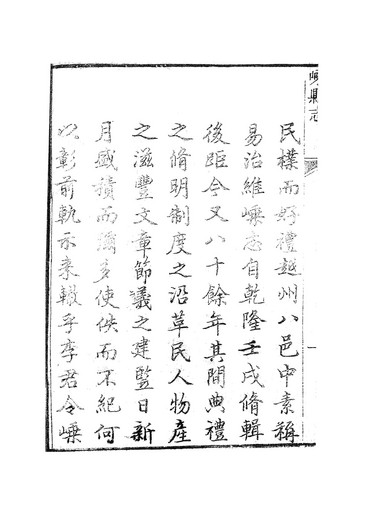 嵊縣志
一
民樸而好禮越州八邑中素稱
易治維嵊志自乾隆壬戌脩輯
後距今又八十餘年其間典禮
之脩明制度之沿革民人物產
之滋豐文章節義之建豎日新
月盛積而彌多使佚而不紀何
以彰前軌示來轍乎李君令嵊